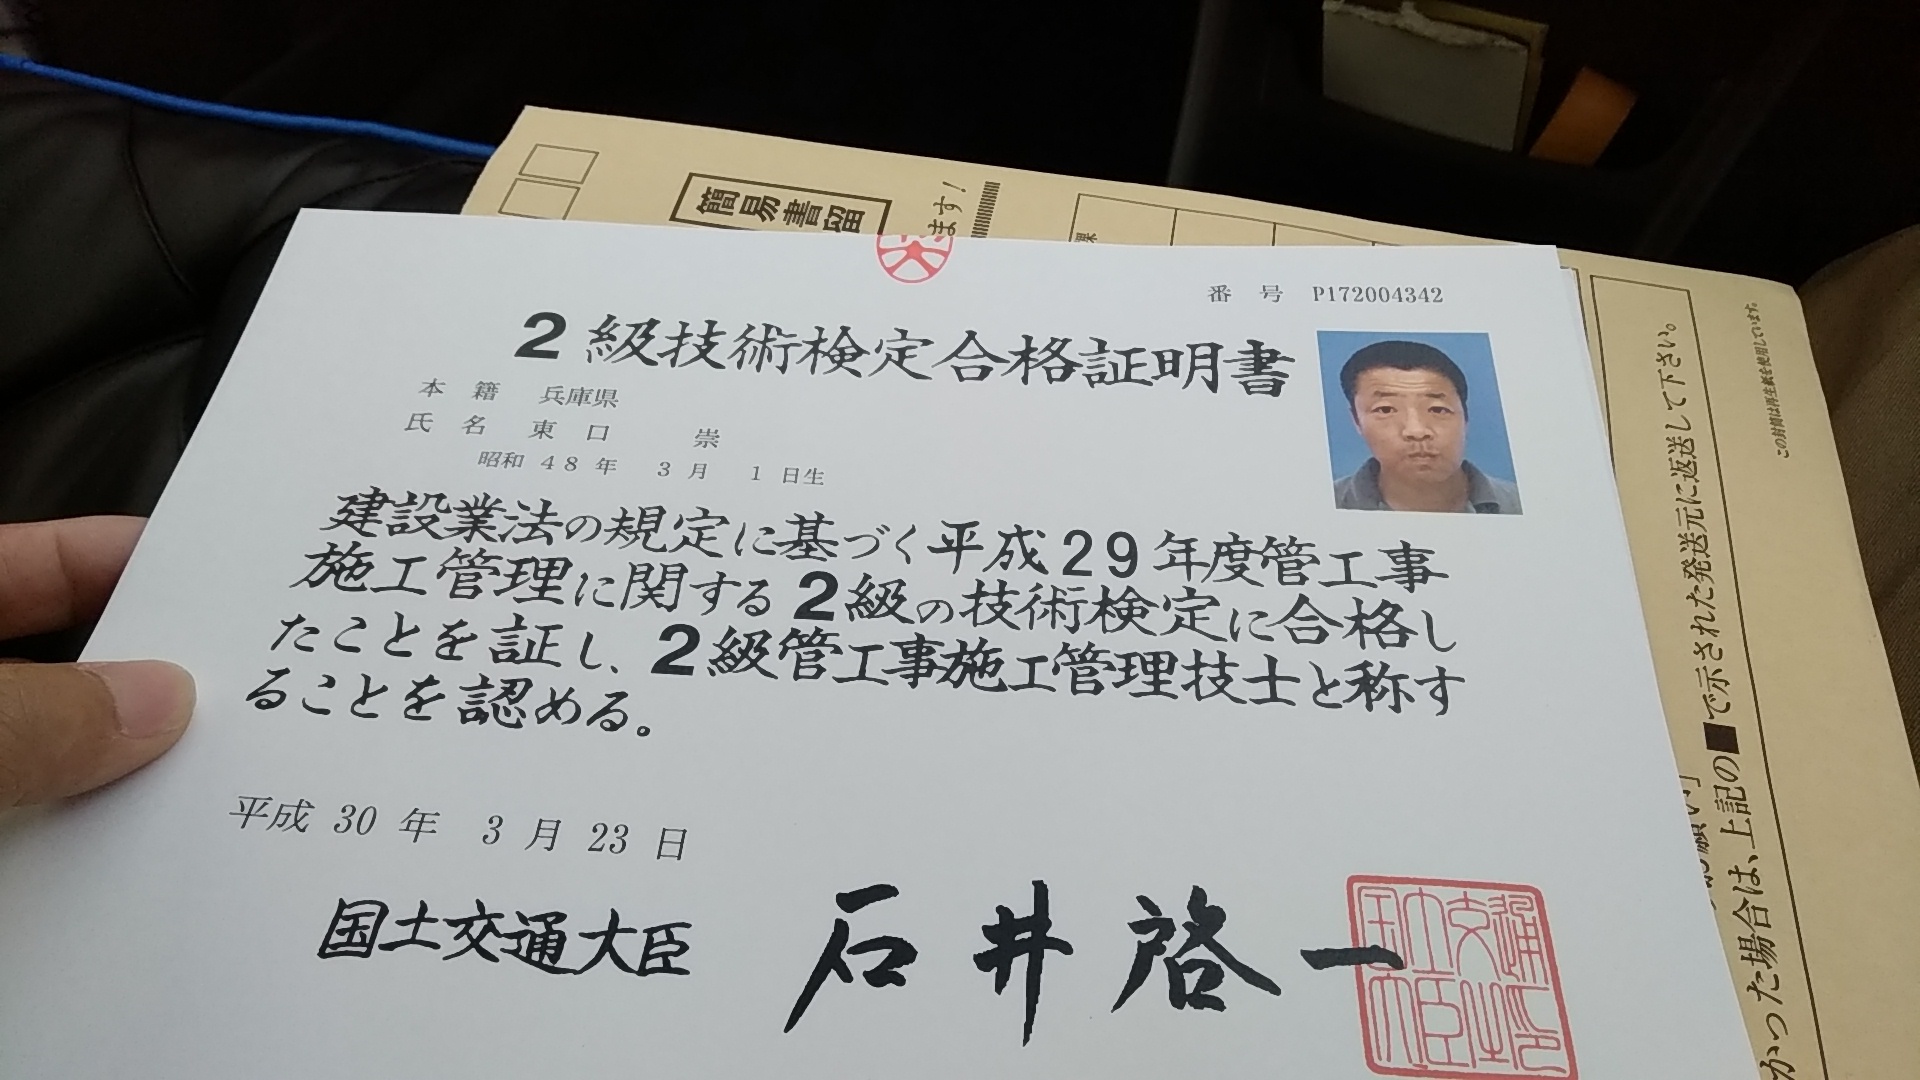 簡易書留
ます!
課
番号 P172004342
2級技術検定合格証明書
本籍 兵庫県
氏名 東口 崇
昭和48年 3月 1日生
建設業法の規定に基づく平成29年度管工事
施工管理に関する2級の技術検定に合格し
たことを証し、2級管工事施工管理技士と称す
ることを認める。
平成 30 年 3 月 23 日
国土交通大臣 石井啓一
かった場合は、上記の■で示された発送元に返送して下さい。
この封筒は再生紙を使用しています。